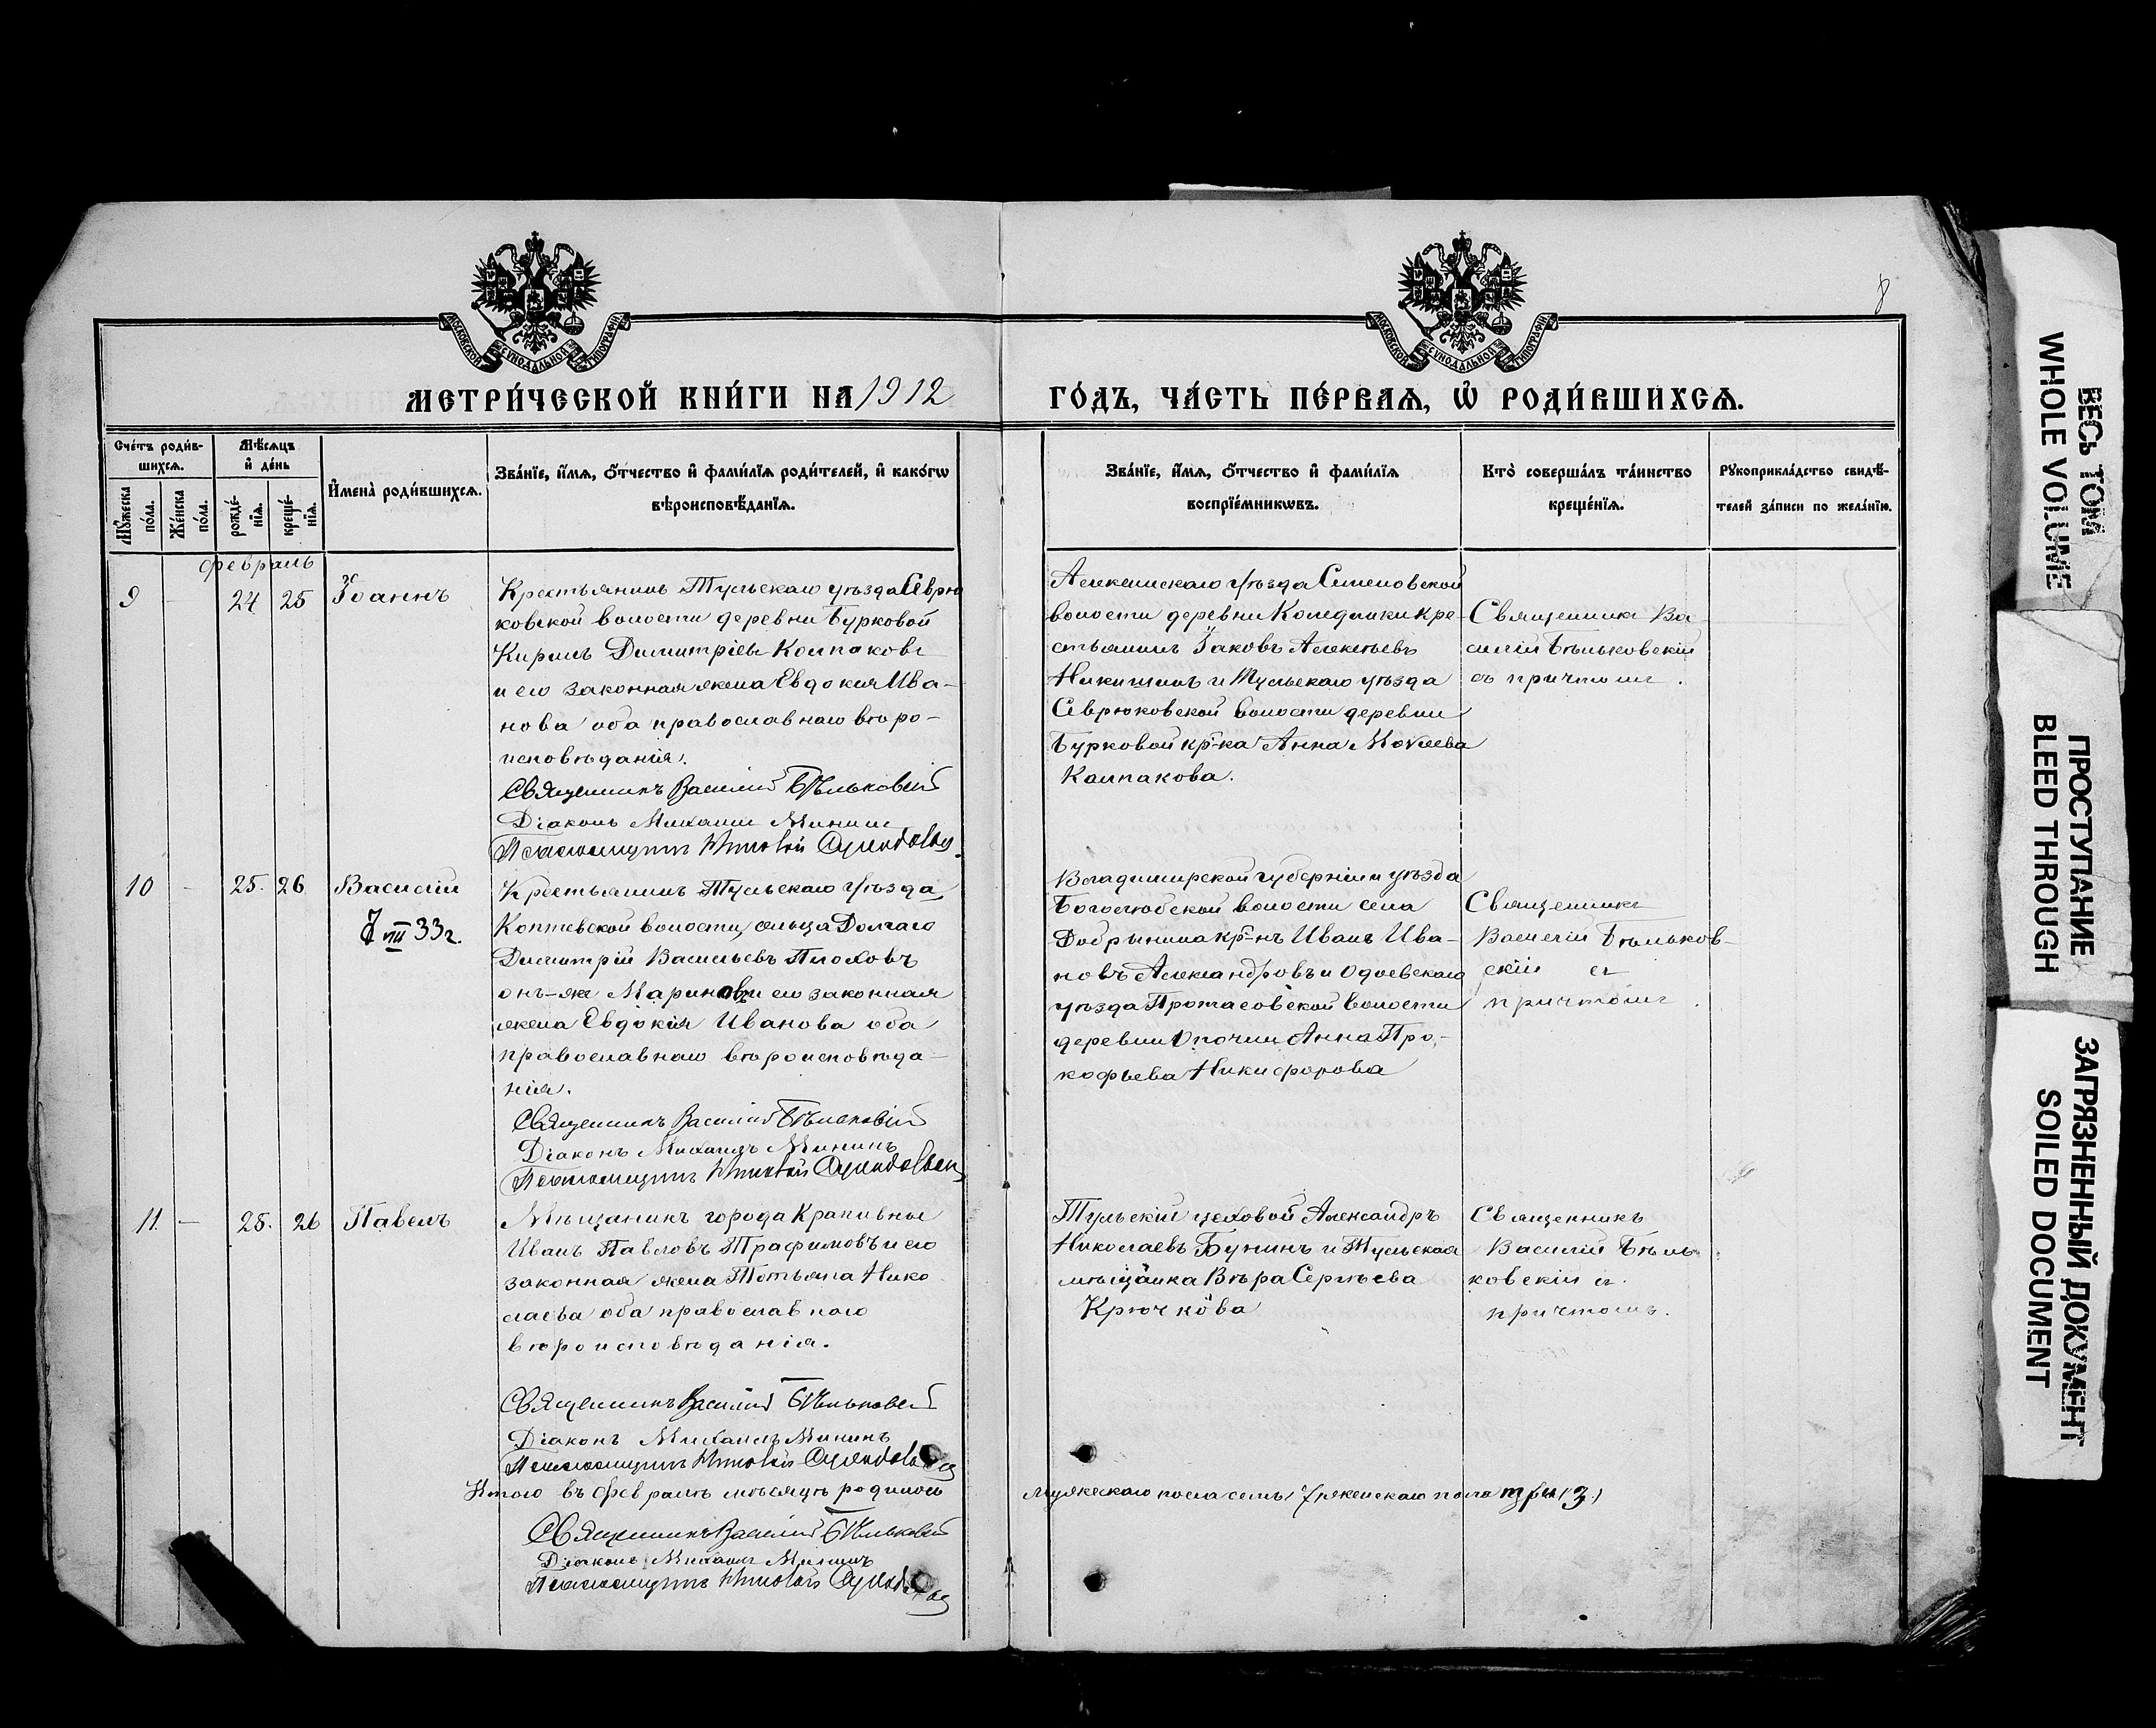 8
МОСКОВСКОЙ СѴНОДАЛЬНОЙ ТИПОГРАФІИ
МОСКОВСКОЙ СѴНОДАЛЬНОЙ ТИПОГРАФІИ
МЕТРИ́ЧЕСКОЙ КНИ́ГИ НА 1912
ГО́ДЪ, ЧА́СТЬ ПЕ́РВАѦ, Ѡ҆ РОДИ́ВШИХСѦ.
Сче́тъ роди́в-
шихсѧ.
Мѣ́сѧцъ
и҆ де́нь
Мꙋ́жеска
по́ла.
Же́нска
по́ла.
рожде́-
нїѧ.
креще́-
нїѧ.
И҆мена̀ роди́вшихсѧ.
Зва́нїе, и҆́мѧ, ѻ҆́тчество и҆ фами́лїѧ роди́телей, и҆ како́гѡ
вѣроисповѣ́данїѧ.
Зва́нїе, и҆́мѧ, ѻ҆́тчество и҆ фами́лїѧ
воспрїе́мникѡвъ.
Кто̀ соверша́лъ та́инство
креще́нїѧ.
Рꙋкоприкла́дство свидѣ́-
телей за́писи по жела́нїю.
февраль
9 - 24 25 Іоаннъ
Крестьянинъ Тульскаго уѣзда Севрю
ковской волости деревни Бурковой
Кирилъ Димитріевъ Колпаковъ
и его законная жена Евдокия Ива-
нова оба православнаго вѣро-
исповѣданія.
Священникъ Василій Бѣльковскій
Діаконъ Михаилъ Мининъ
Псаломщикъ
Алексинскаго уѣзда Стеновской
волости деревни Коледники кре-
стьянинъ Іаковъ Алексѣевъ
Никишинъ и Тульскаго уѣзда
Севрюковской волости деревни
Бурковой кр-ка Анна
Колпакова.
Священникъ Ва-
силій Бѣльковскій
съ причтомъ.
10 - 25. 26 Василій
VIII 33 г.
Крестьянинъ Тульскаго уѣзда
Коптевской волости, сельца Долгаго
Димитрій Васильевъ Плоховъ
онъ-же Мариновъ и его законная
жена Евдокія Иванова оба
православнаго вѣроисповѣда-
нія.
Священникъ Василій Бѣльковскій
Діаконъ Михаилъ Мининъ
Псаломщикъ
Владимирской губерніи и уѣзда
Боголюбской волости села
Добрынина кр-нъ Иванъ Ива-
новъ Александровъ и Одоевскаго
уѣзда Протасовской волости
деревни Опочни Анна Про-
кофьева Никифорова
Священникъ
Василій Бѣльков-
скій съ
причтомъ.
11. - 25. 26 Павелъ
Мѣщанинъ города Крапивны
Иванъ Павловъ Трафимовъ и его
законная жена Татьяна Нико
лаева оба православнаго
вѣроисповѣданія.
Священникъ Василій Бѣльковскій
Діаконъ Михаилъ Мининъ
Псаломщикъ
Тульскій цеховой Александръ
Николаевъ Бунинъ и Тульская
мѣщанка Вѣра Сергѣева
Крючкова
Священникъ
Василій Бѣль
ковскій съ
причтомъ.
Итого въ февралѣ мѣсяцѣ родилось
мужскаго пола семь (7) женскаго пола три (3.)
Священникъ Василій Бѣльковскій
Діаконъ Михаилъ Мининъ
Псаломщикъ
ВЕСЬ ТОМ
WHOLE VOLUME
ПРОСТУПАНИЕ
BLEED THROUGH
ЗАГРЯЗНЕННЫЙ ДОКУМЕНТ
SOILED DOCUMENT